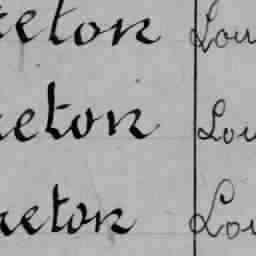 reton Lou
reton Lou
reton Lou